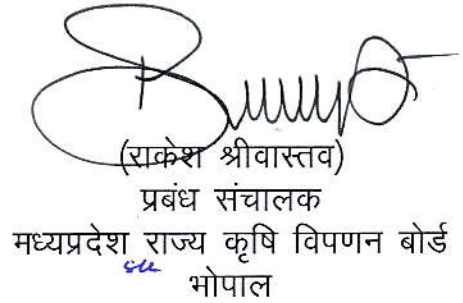 (राकेश श्रीवास्तव)
प्रबंध संचालक
मध्यप्रदेश राज्य कृषि विपणन बोर्ड
भोपाल